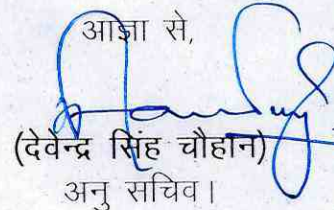 आज्ञा से,
(देवेन्द्र सिंह चौहान)
अनु सचिव।